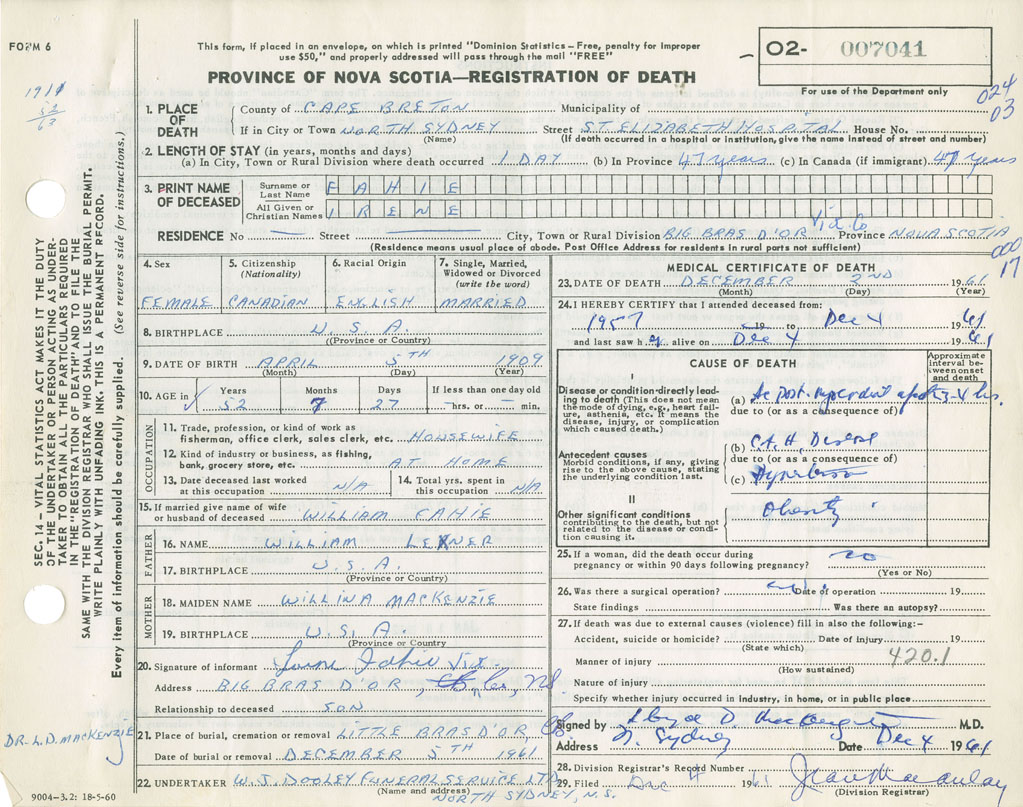 FORM 6
This form, if placed in an envelope, on which is printed "Dominion Statistics – Free, penalty for improper
use $50," and properly addressed will pass through the mail "FREE"
O2- 007041
PROVINCE OF NOVA SCOTIA—REGISTRATION OF DEATH
For use of the Department only
024
03
1. PLACE OF DEATH
County of CAPE BRETON Municipality of
If in City or Town NORTH SYDNEY Street ST ELIZABETH HOSPITAL House No.
(Name) (If death occurred in a hospital or institution, give the name instead of street and number)
2. LENGTH OF STAY (in years, months and days)
(a) In City, Town or Rural Division where death occurred 1 DAY (b) In Province 47 years (c) In Canada (if immigrant) 47 years
3. PRINT NAME OF DECEASED
Surname or Last Name FAHIE
All Given or Christian Names IRENE
Vic. Co
RESIDENCE No — Street — City, Town or Rural Division BIG BRAS D'OR Province NOVA SCOTIA
(Residence means usual place of abode. Post Office Address for residents in rural parts not sufficient)
000
17
4. Sex FEMALE
5. Citizenship (Nationality) CANADIAN
6. Racial Origin ENGLISH
7. Single, Married, Widowed or Divorced (write the word) MARRIED
8. BIRTHPLACE U.S.A.
(Province or Country)
9. DATE OF BIRTH APRIL 5TH 1909
(Month) (Day) (Year)
10. AGE in Years 52 Months 7 Days 27 If less than one day old — hrs. or — min.
OCCUPATION
11. Trade, profession, or kind of work as
fisherman, office clerk, sales clerk, etc. HOUSEWIFE
12. Kind of industry or business, as fishing,
bank, grocery store, etc. AT HOME
13. Date deceased last worked at this occupation N/A
14. Total yrs. spent in this occupation N/A
15. If married give name of wife
or husband of deceased WILLIAM FAHIE
FATHER
16. NAME WILLIAM
17. BIRTHPLACE U.S.A.
(Province or Country)
MOTHER
18. MAIDEN NAME WILLINA MACKENZIE
19. BIRTHPLACE U.S.A.
(Province or Country)
20. Signature of informant Fahie
Address BIG BRAS D'OR,
Relationship to deceased SON
21. Place of burial, cremation or removal LITTLE BRAS D'OR, CB
Date of burial or removal DECEMBER 5TH 1961
22. UNDERTAKER W.J. DOOLEY FUNERAL SERVICE LTD
(Name and address) NORTH SYDNEY, N.S.
MEDICAL CERTIFICATE OF DEATH
23. DATE OF DEATH DECEMBER 2ND 1961
(Month) (Day) (Year)
24. I HEREBY CERTIFY that I attended deceased from:
1957 19 to Dec 4 1961
and last saw her alive on Dec 4 1961
CAUSE OF DEATH
Approximate interval between onset and death
I
Disease or condition directly leading to death (This does not mean the mode of dying, e.g., heart failure, asthenia, etc. It means the disease, injury, or complication which caused death.)
(a)
due to (or as a consequence of)
Antecedent causes
Morbid conditions, if any, giving rise to the above cause, stating the underlying condition last.
(b) Disease
due to (or as a consequence of)
(c)
II
Other significant conditions
contributing to the death, but not related to the disease or condition causing it.
Obesity
25. If a woman, did the death occur during
pregnancy or within 90 days following pregnancy? no
(Yes or No)
26. Was there a surgical operation? no Date of operation 19
State findings Was there an autopsy?
27. If death was due to external causes (violence) fill in also the following:–
Accident, suicide or homicide? Date of injury 19
(State which)
Manner of injury 420.1
(How sustained)
Nature of injury
Specify whether injury occurred in Industry, in home, or in public place
Signed by M.D.
Address N. Sydney Date Dec 4 1961
28. Division Registrar's Record Number
29. Filed Dec 4 1961 Jean Macaulay
(Division Registrar)
SEC. 14 – VITAL STATISTICS ACT MAKES IT THE DUTY
OF THE UNDERTAKER OR PERSON ACTING AS UNDER-
TAKER TO OBTAIN ALL THE PARTICULARS REQUIRED
IN THE "REGISTRATION OF DEATH" AND TO FILE THE
SAME WITH THE DIVISION REGISTRAR WHO SHALL ISSUE THE BURIAL PERMIT.
WRITE PLAINLY WITH UNFADING INK. THIS IS A PERMANENT RECORD.
Every item of information should be carefully supplied. (See reverse side for instructions.)
DR. L.D. MACKENZIE
9004–3.2: 18-5-60